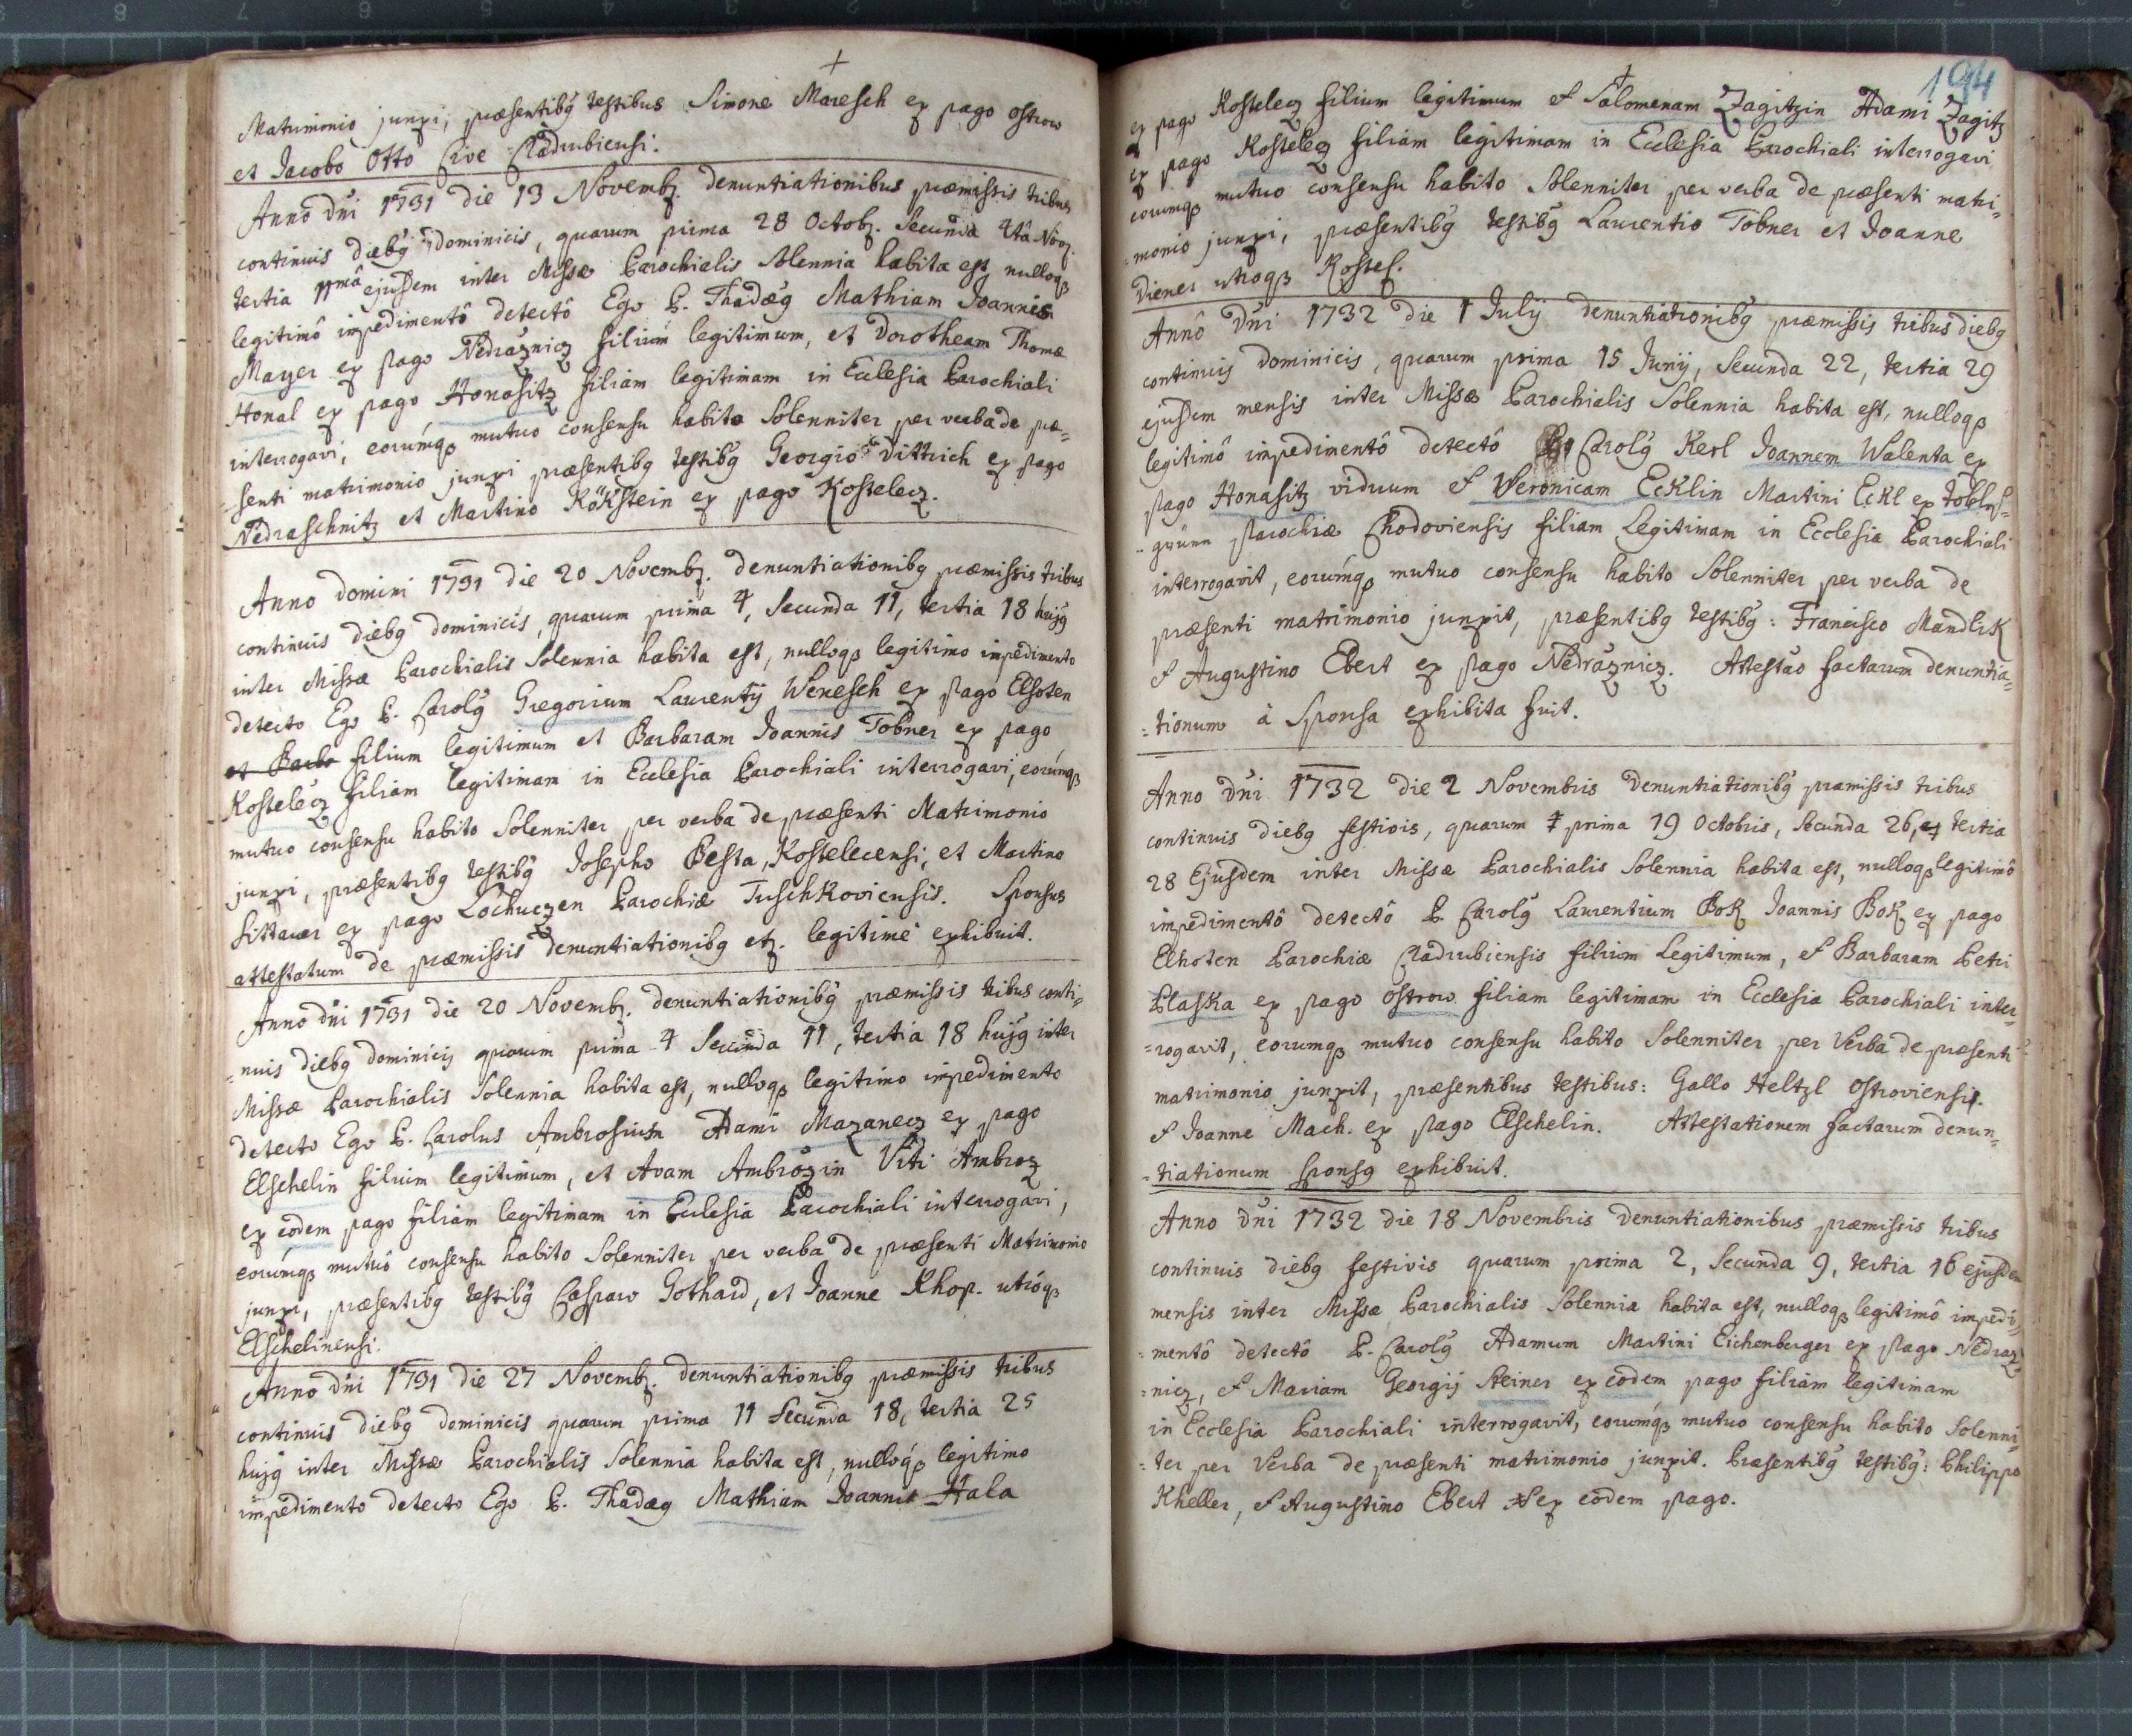 Matrimonio junxi, præsentibg testibus Simone Maresch ex pago Ostrow
et Jacobo Otto Cive Cladrubiensi.
Anno dni 1731 die 13 Novemb. denuntiationibus præmissis tribus
continuis diebg dominicis, quarum prima 28 Octob. Secunda 4ta Nov.
tertia 11mâ ejusdem inter Missæ Parochialis Solennia habita est, nulloq
legitimô impedimentô detectô Ego P. Thadæg Mathiam Joannis
Mayer ex pago Nedražnicz filium legitimum, et Dorotheam Thomæ
Honal ex pago Honositz filiam legitimam in Ecclesia Parochiali
interrogavi, eorúmq mutuo consensu habito Solenniter per verba de præ=
=senti matrimonio junxi præsentibg testibg Georgio Dittrich ex pago
Nedraschnitz et Martino Rökstein ex pago Kostelecz.
Anno domini 1731 die 20 Novemb. denuntiationibg præmissis tribus
continuis diebg dominicis, quarum prima 4, Secunda 11, tertia 18 hujg
inter Missæ Parochialis Solennia habita est, nulloq legitimo impedimento
detecto Ego P. Carolg Gregorium Laurentij Wenesch ex pago Elhoten
et Barba filium legitimum et Barbaram Joannis Tobner ex pago
Kostelecz filiam legitimam in Ecclesia Parochiali interrogavi, eorúmq
mutuo consensu habito Solenniter per verba de præsenti Matrimonio
junxi, præsentibg testibg Josepho Besta, Kostelecensi, et Martino
Littauer ex pago Lochuczen Parochiæ Tuschkoviensis. Sponsus
attestatum de præmissis denuntiationibg etz. legitimè exhibuit.
Anno dni 1731 die 20 Novemb. denuntiationibg præmissis tribus conti=
=nuis diebg dominicis quarum prima 4 Secunda 11, tertia 18 hujg inter
Missæ Parochialis Solennia habita est, nulloq legitimo impedimento
detecto Ego P. Carolus Ambrosium Adami Mazanecz ex pago
Elschelin filium legitimum, et Avam Ambrozin Viti Ambroz
ex eodem pago filiam legitimam in Ecclesia Parochiali interrogavi,
eorúmq mutuô consensu habito Solenniter per verba de præsenti Matrimonio
junxi, præsentibg testibg Casparo Gothard, et Joanne Khop. utróq
Elschelinensi.
Anno dni 1731 die 27 Novemb. denuntiationibg præmissis tribus
continuis diebg dominicis quarum prima 11 Secunda 18, tertia 25
hujg inter Missæ Parochialis Solennia habita est, nullóq legitimo
impedimento detecto Ego P. Thadæg Mathiam Joannis Hala
194
ex pago Kostelecz filium legitimum et Salomenam Zagitzin Adami Zagitz
ex pago Kostelecz filiam legitimam in Ecclesia Parochiali interrogavi
eorumq mutuo consensu habito Solenniter per verba de præsenti matri=
=monio junxi, præsentibg testibg Laurentio Tobner et Joanne
Diener utroq Kostel.
Annô Dni 1732 die 1 July denuntiationibg præmissis tribus diebg
continuis dominicis, quarum prima 15 Junij, Secunda 22, tertia 29
ejusdem mensis inter Missæ Parochialis Solennia habita est, nulloq
legitimô impedimentô detectô Carolg Kerl Joannem Walenta ex
pago Honositz viduum et Veronicam Ecklin Martini Eckl ex
grünn Parochiæ Chodoviensis filiam Legitimam in Ecclesia Parochiali
interrogavit, eorúmq mutuo consensu habito Solenniter per verba de
præsenti matrimonio junxit, præsentibg testibg: Francisco Mandlik
et Augustino Ebert ex pago Nedraznicz. Attestão factarum denuntia=
=tionum à Sponsa exhibita fuit.
Anno Dni 1732 die 2 Novembris denuntiationibg præmissis tribus
continuis diebg festivis, quarum prima 19 Octobris, Secunda 26, et tertia
28 Ejusdem inter Missæ Parochialis Solennia habita est, nulloq legitimô
impedimentô detectô P. Carolg Laurentium Bok Joannis Bok ex pago
Elhoten Parochiæ Cladrubiensis filium Legitimum, et Barbaram Petri
Plaska ex pago Ostrow filiam legitimam in Ecclesia Parochiali inter=
=rogavit, eorumq mutuo consensu habito Solenniter per Verba de præsenti
matrimonio junxit, præsentibus testibus: Gallo Heltzl Ostroviensi.
et Joanne Mach. ex pago Elschelin. Attestationem factarum denun=
=tiationum sponsg exhibuit.
Anno Dni 1732 die 18 Novembris denuntiationibus præmissis tribus
continuis diebg festivis quarum prima 2, Secunda 9, tertia 16 ejusdem
mensis inter Missæ Parochialis Solennia habita est, nulloq legitimô impedi=
=mentô detectô P. Carolg Adamum Martini Eichenberger ex pago Nedraz=
=nicz, et Mariam Georgij Steiner ex eodem pago filiam legitimam
in Ecclesia Parochiali interrogavit, eorumq mutuo consensu habito Solenni=
=ter per Verba de præsenti matrimonio junxit. Præsentibg testibg: Philippo
Kheller, et Augustino Ebert ex eodem pago.